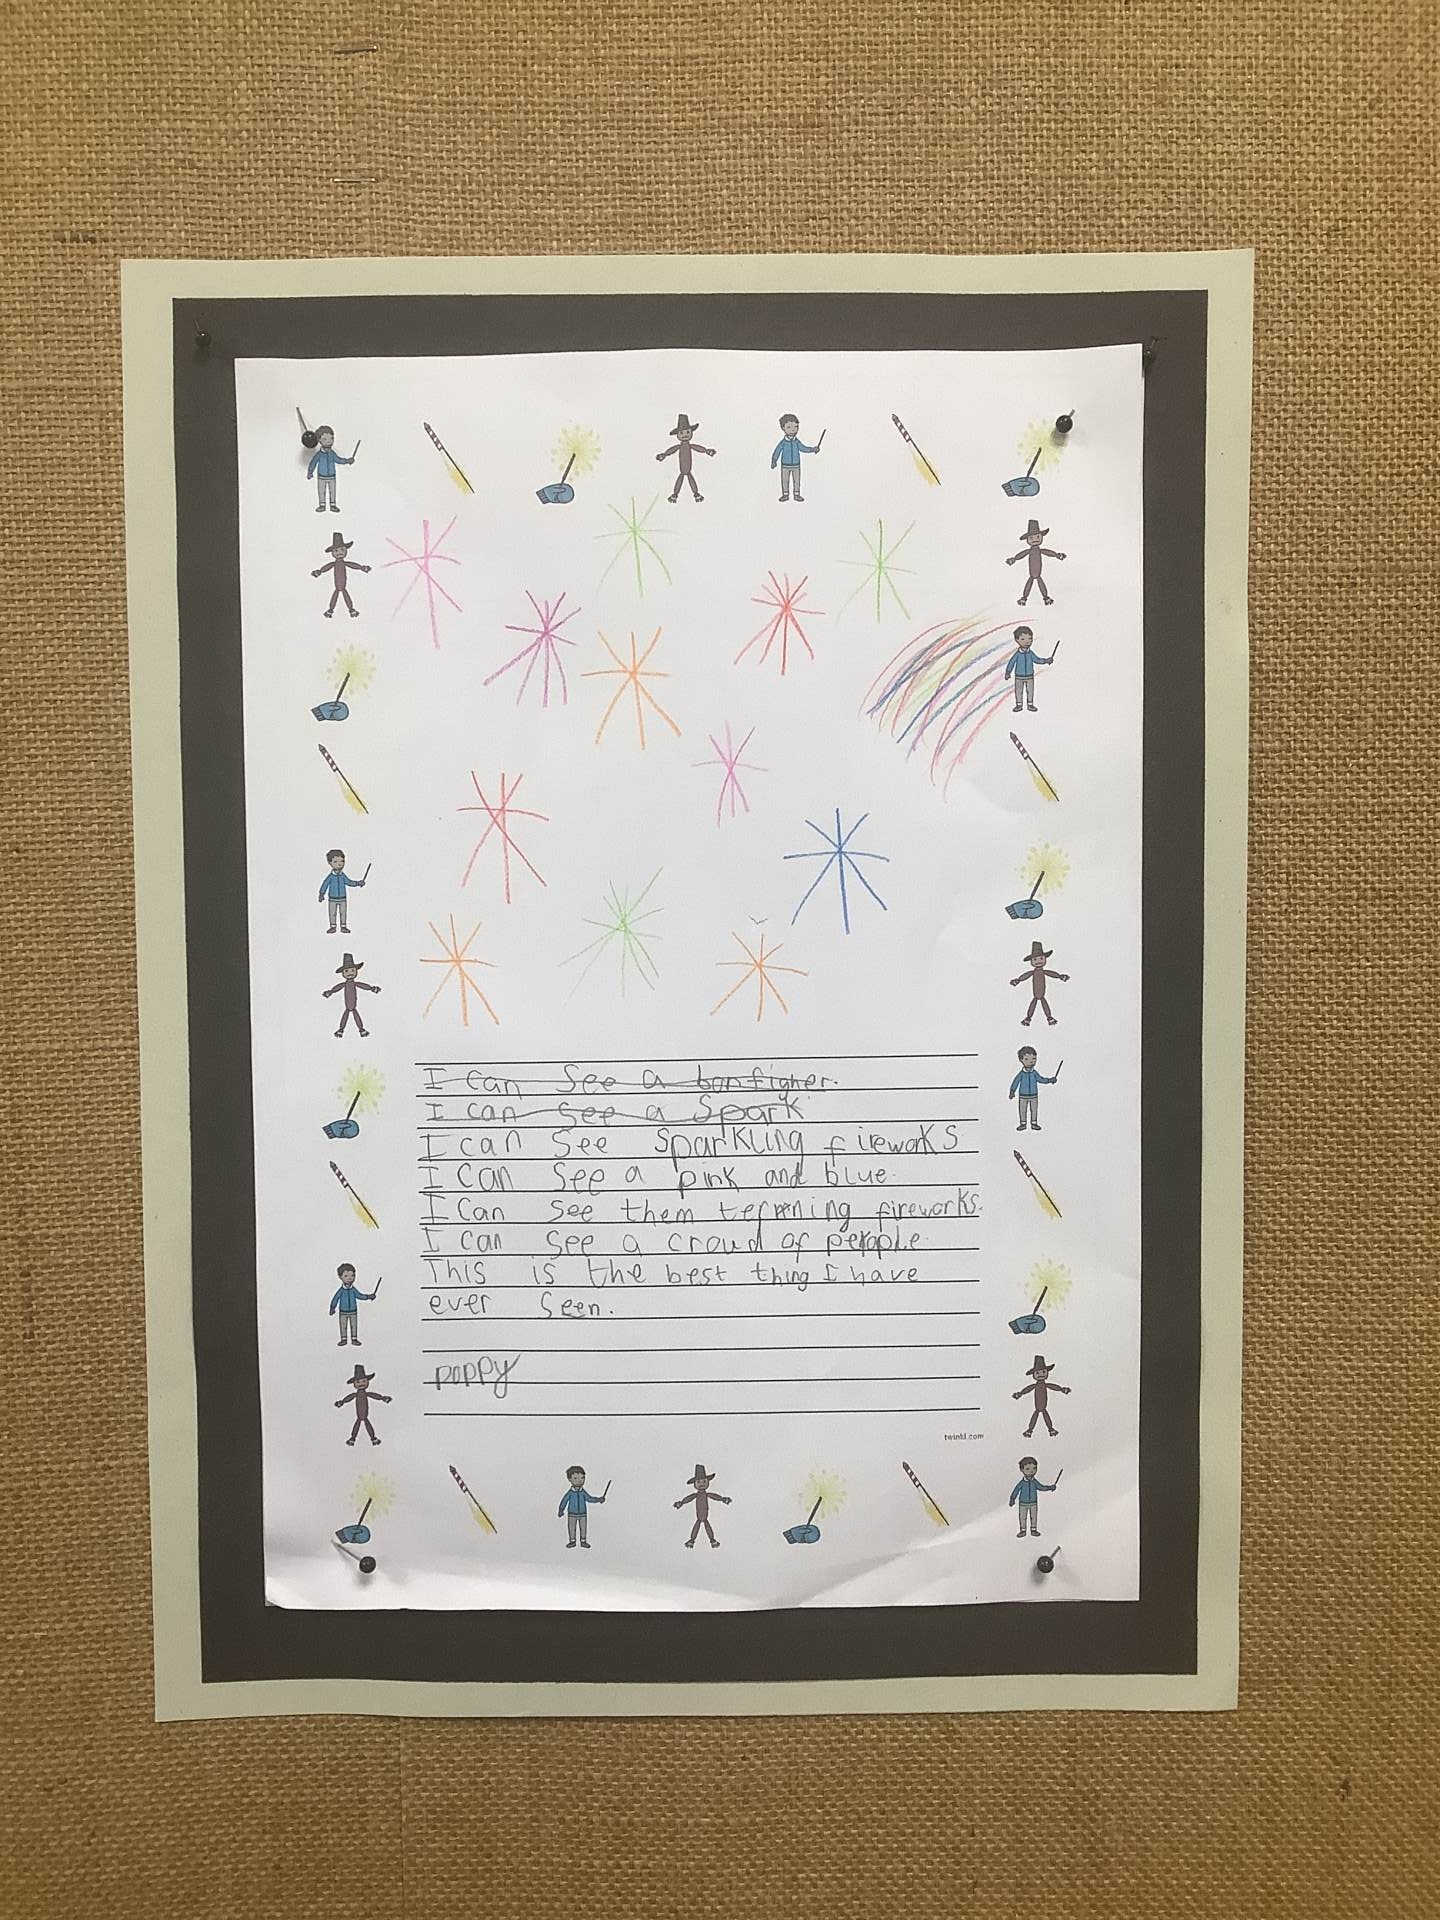 I can See a bonfigher.
I can See a Spark
I can See Sparkling fireworks
I can see a pink and blue.
I can see them terning fireworks.
I can see a croud of people.
This is the best thing I have
ever seen.
poppy
twinkl.com